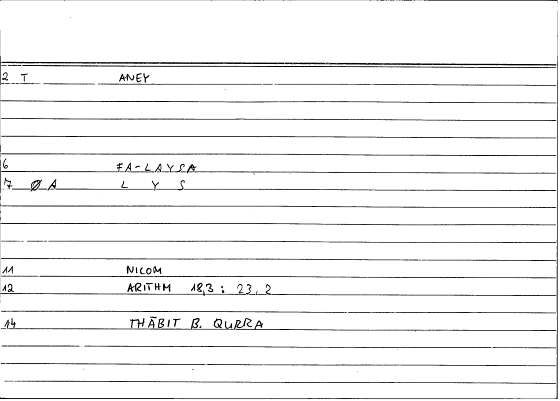 2 T ANEY
6 FA-LAYSA
7 Ø A L Y S
11 NICOM
12 ARITHM 18,3 : 23,2
14 THĀBIT B. QURRA